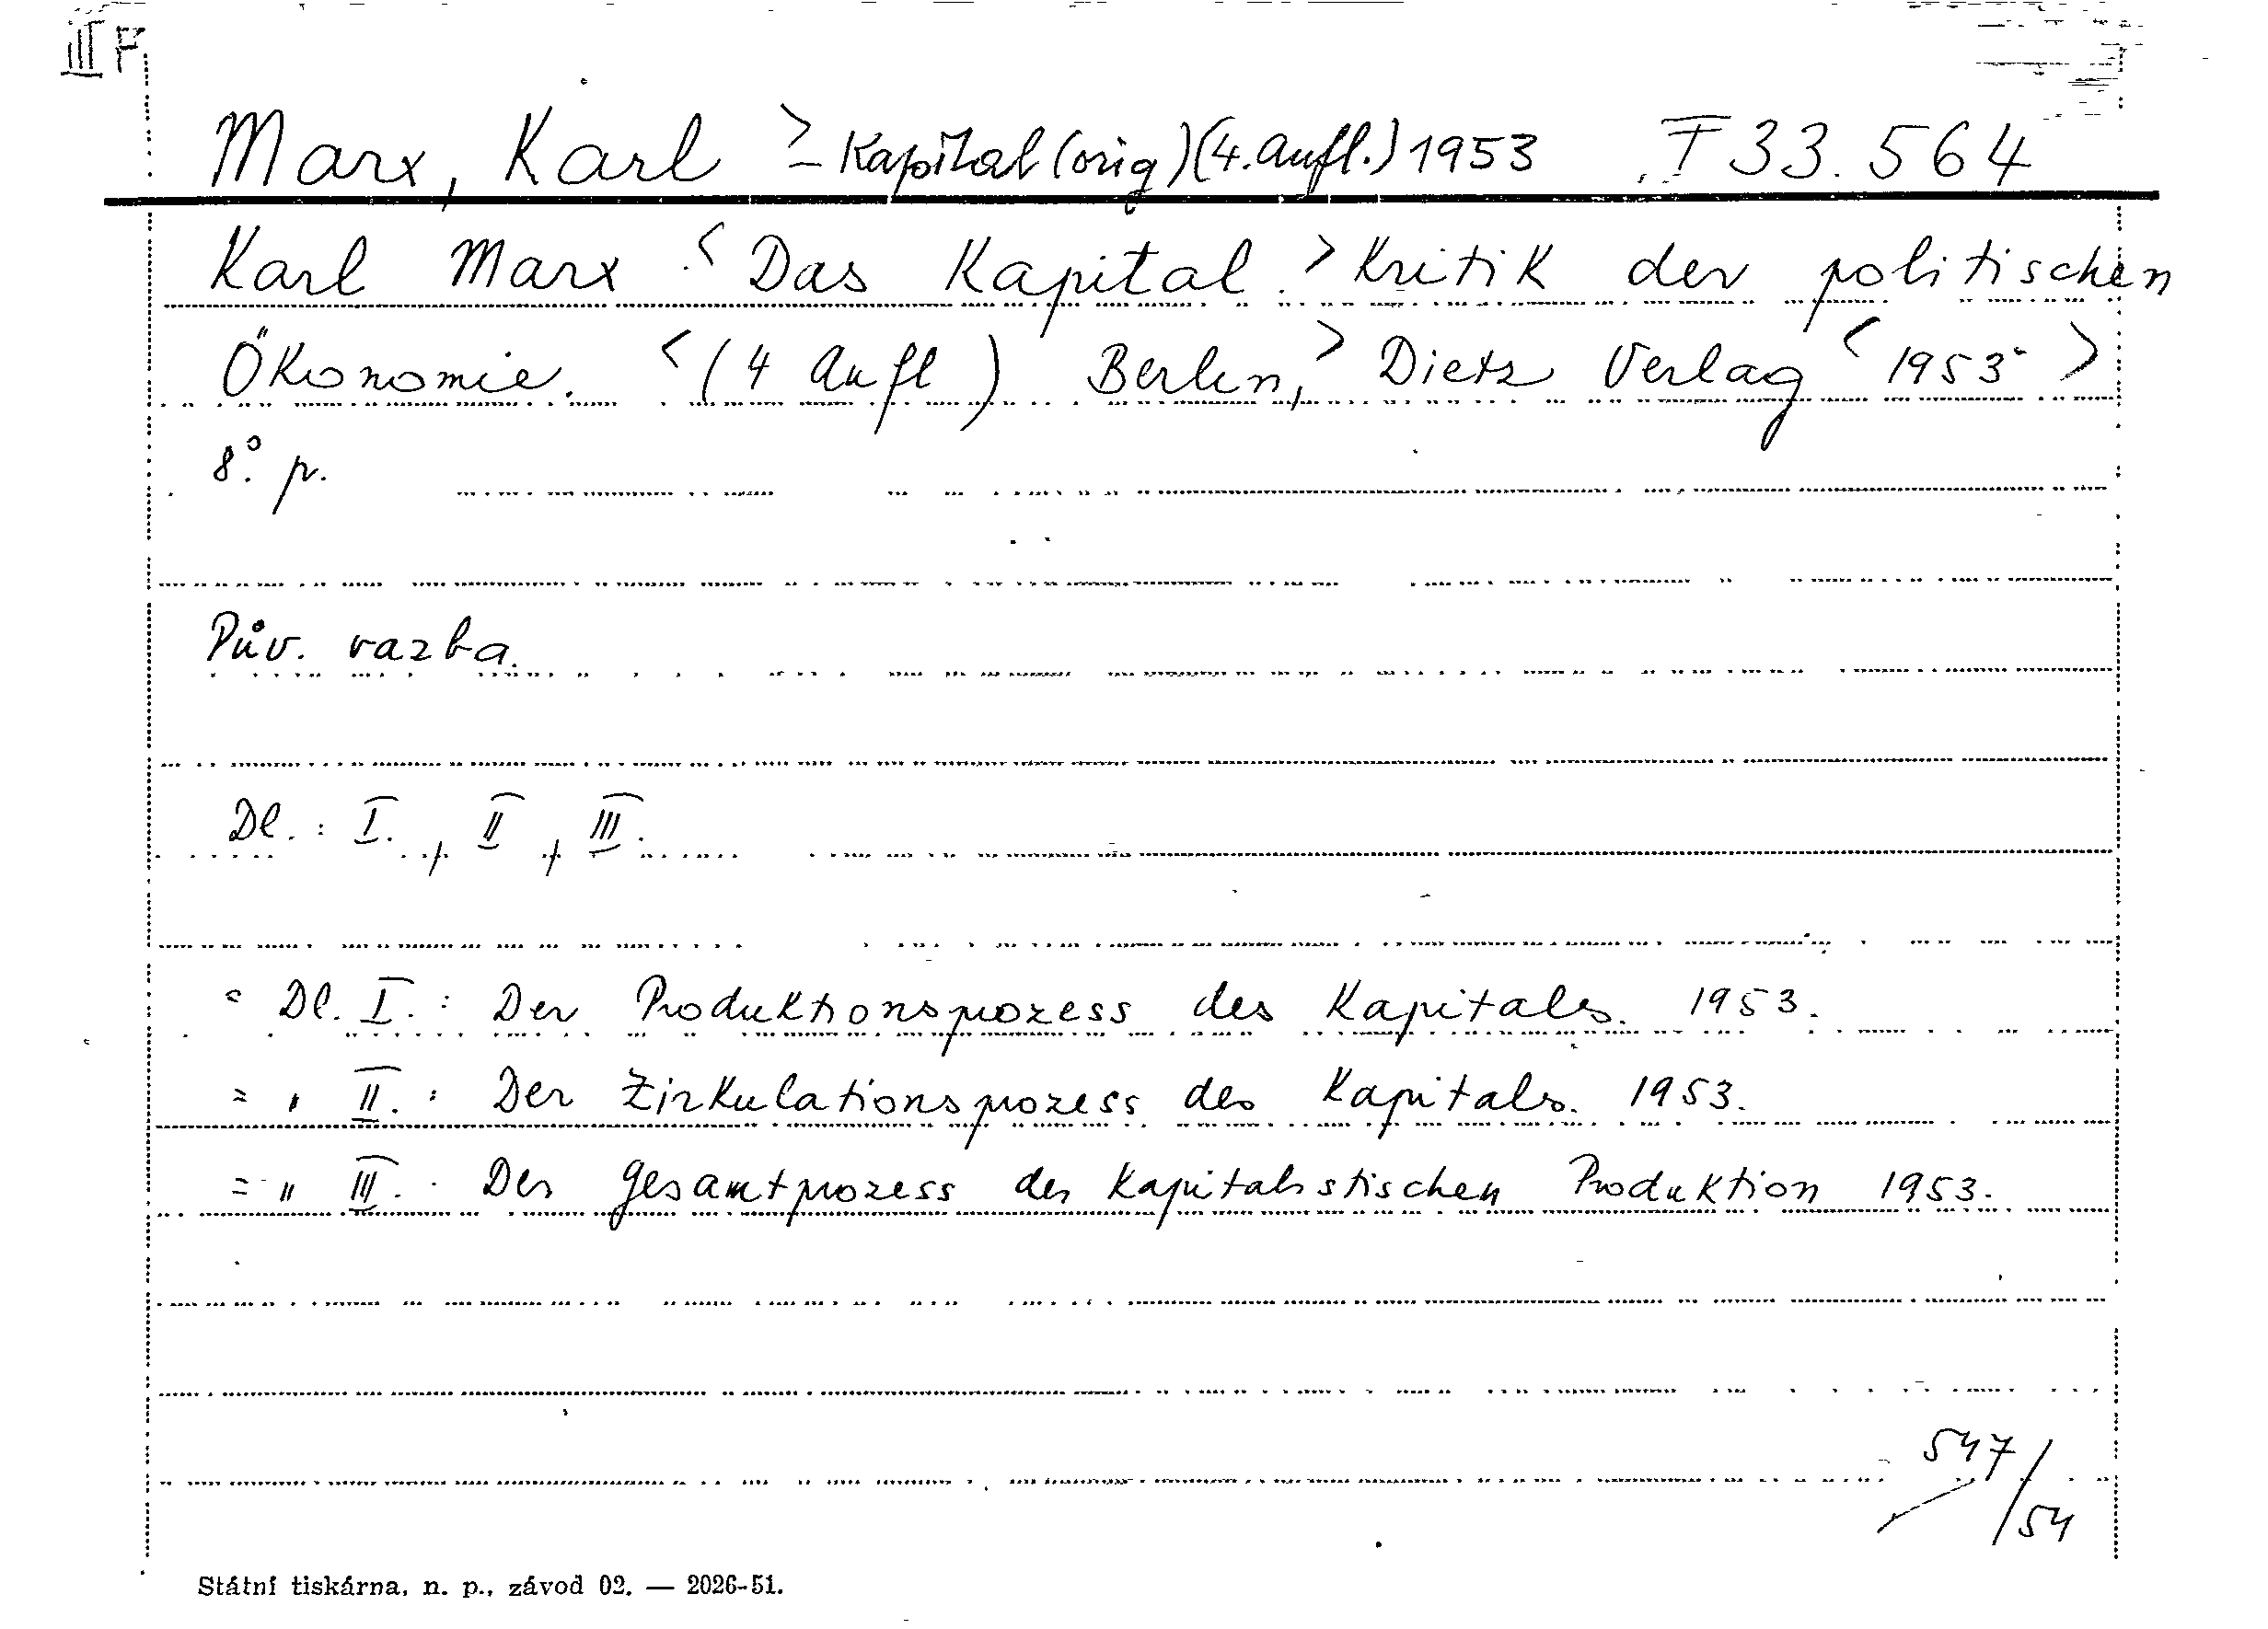 III F
Marx, Karl > – Kapital (orig) (4. Aufl.) 1953 F 33.564
Karl Marx < Das Kapital. > Kritik der politischen
Ökonomie. < (4 Aufl) Berlin, > Dietz Verlag < 1953 >
8°. p.
Pův. vazba.
Dl. : I., II, III.
° Dl. I. : Der Produktionsprozess des Kapitals. 1953.
= " II. : Der Zirkulationsprozess des Kapitals. 1953.
= " III. . Der Gesamtprozess der kapitalistischen Produktion 1953.
547/54
Státní tiskárna, n. p., závod 02. — 2026-51.